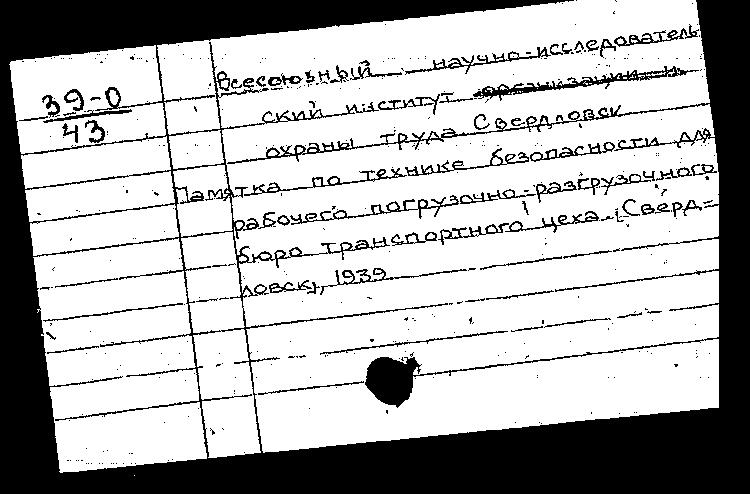 39-0
43
Всесоюзный научно-исследователь
ский институт организации и
охраны труда. Свердловск
Памятка по технике безопасности для
рабочего погрузочно-разгрузочного
бюро транспортного цеха. [Сверд=
ловск], 1939